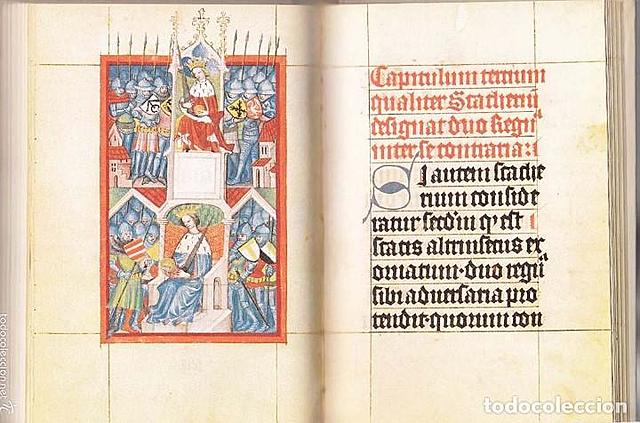 Capitulum tertium
qualiter Stacherij
designat duo Regn
inter se contraria:
Si autem stache
rium conside
ratur secdm qr est
statis altrinsecus ex
ornatum duo regn
sibi adversaria pro
tendit quorum con
todocoleccion
todocoleccion.net